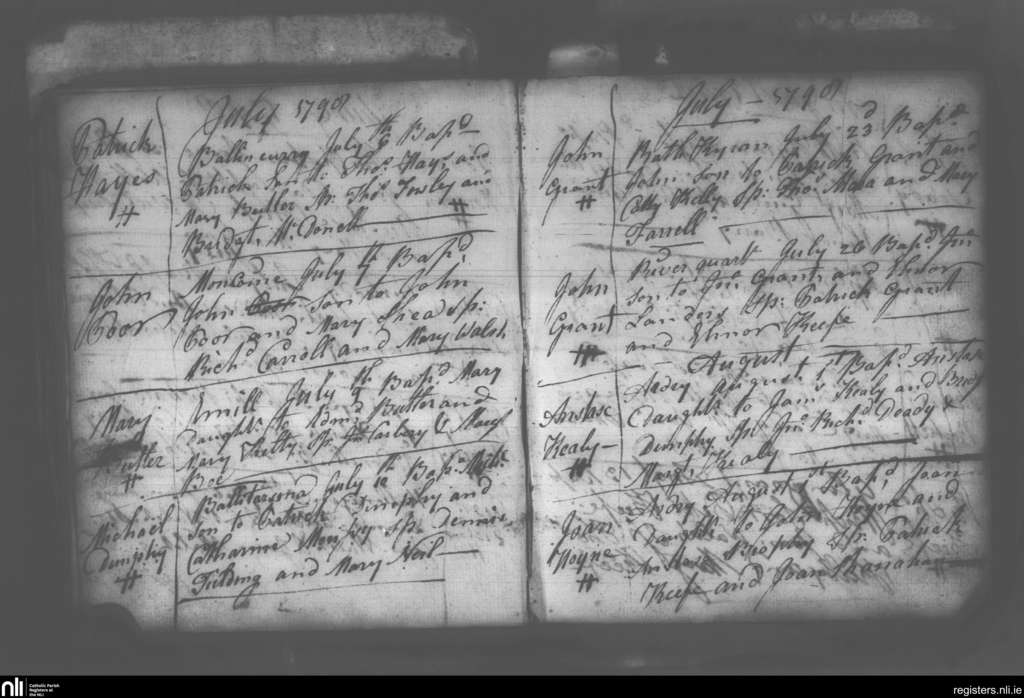 July 1798
Patrick
Hayes
Ballincurry July 6th Bapd
Patrick Son to Thos Hays and
Mary Butler Sp: Thos Tousley and
Bridgt McDonell
John
Poor
Moncoine July 4th Bapd
John son to John
Poor and Mary Shea Sp:
Richd Carroll and Mary Walsh
Mary
Butler
July 9th Bapd Mary
Daughtr to Edmd Butler and
Mary Sp: Jno Carbery & Mary
Michael
Dunphy
July 12th Bapd Michl
son to Patrick Dunphy and
Catharine Murphy Sp: Dennis
Fielding and Mary Neil
July - 1798
John
Grant
Rath Kyran July 23d Bapd
John son to Patrick Grant and
Catty Kelly Sp: Thos Mara and Mary
Farrell
John
Grant
River quart July 26 Bapd Jno
son to Jno Grant and Elinor
Landers Sp: Patrick Grant
and Elinor Keefe
August
Anstase
Kealy
Ardey August 1st Bapd Anstase
Daughtr to Jams Kealy and Bridgt
Dunphy Sp: Jno Richd Deady &
Margt Kealy
Joan
Hoyne
Ardey August 1st Bapd Joan
Daughtr to John Hoyne and
Anstase Brophy Sp: Patrick
Keefe and Joan Shanahan
nli
Catholic Parish
Registers at
the NLI
registers.nli.ie